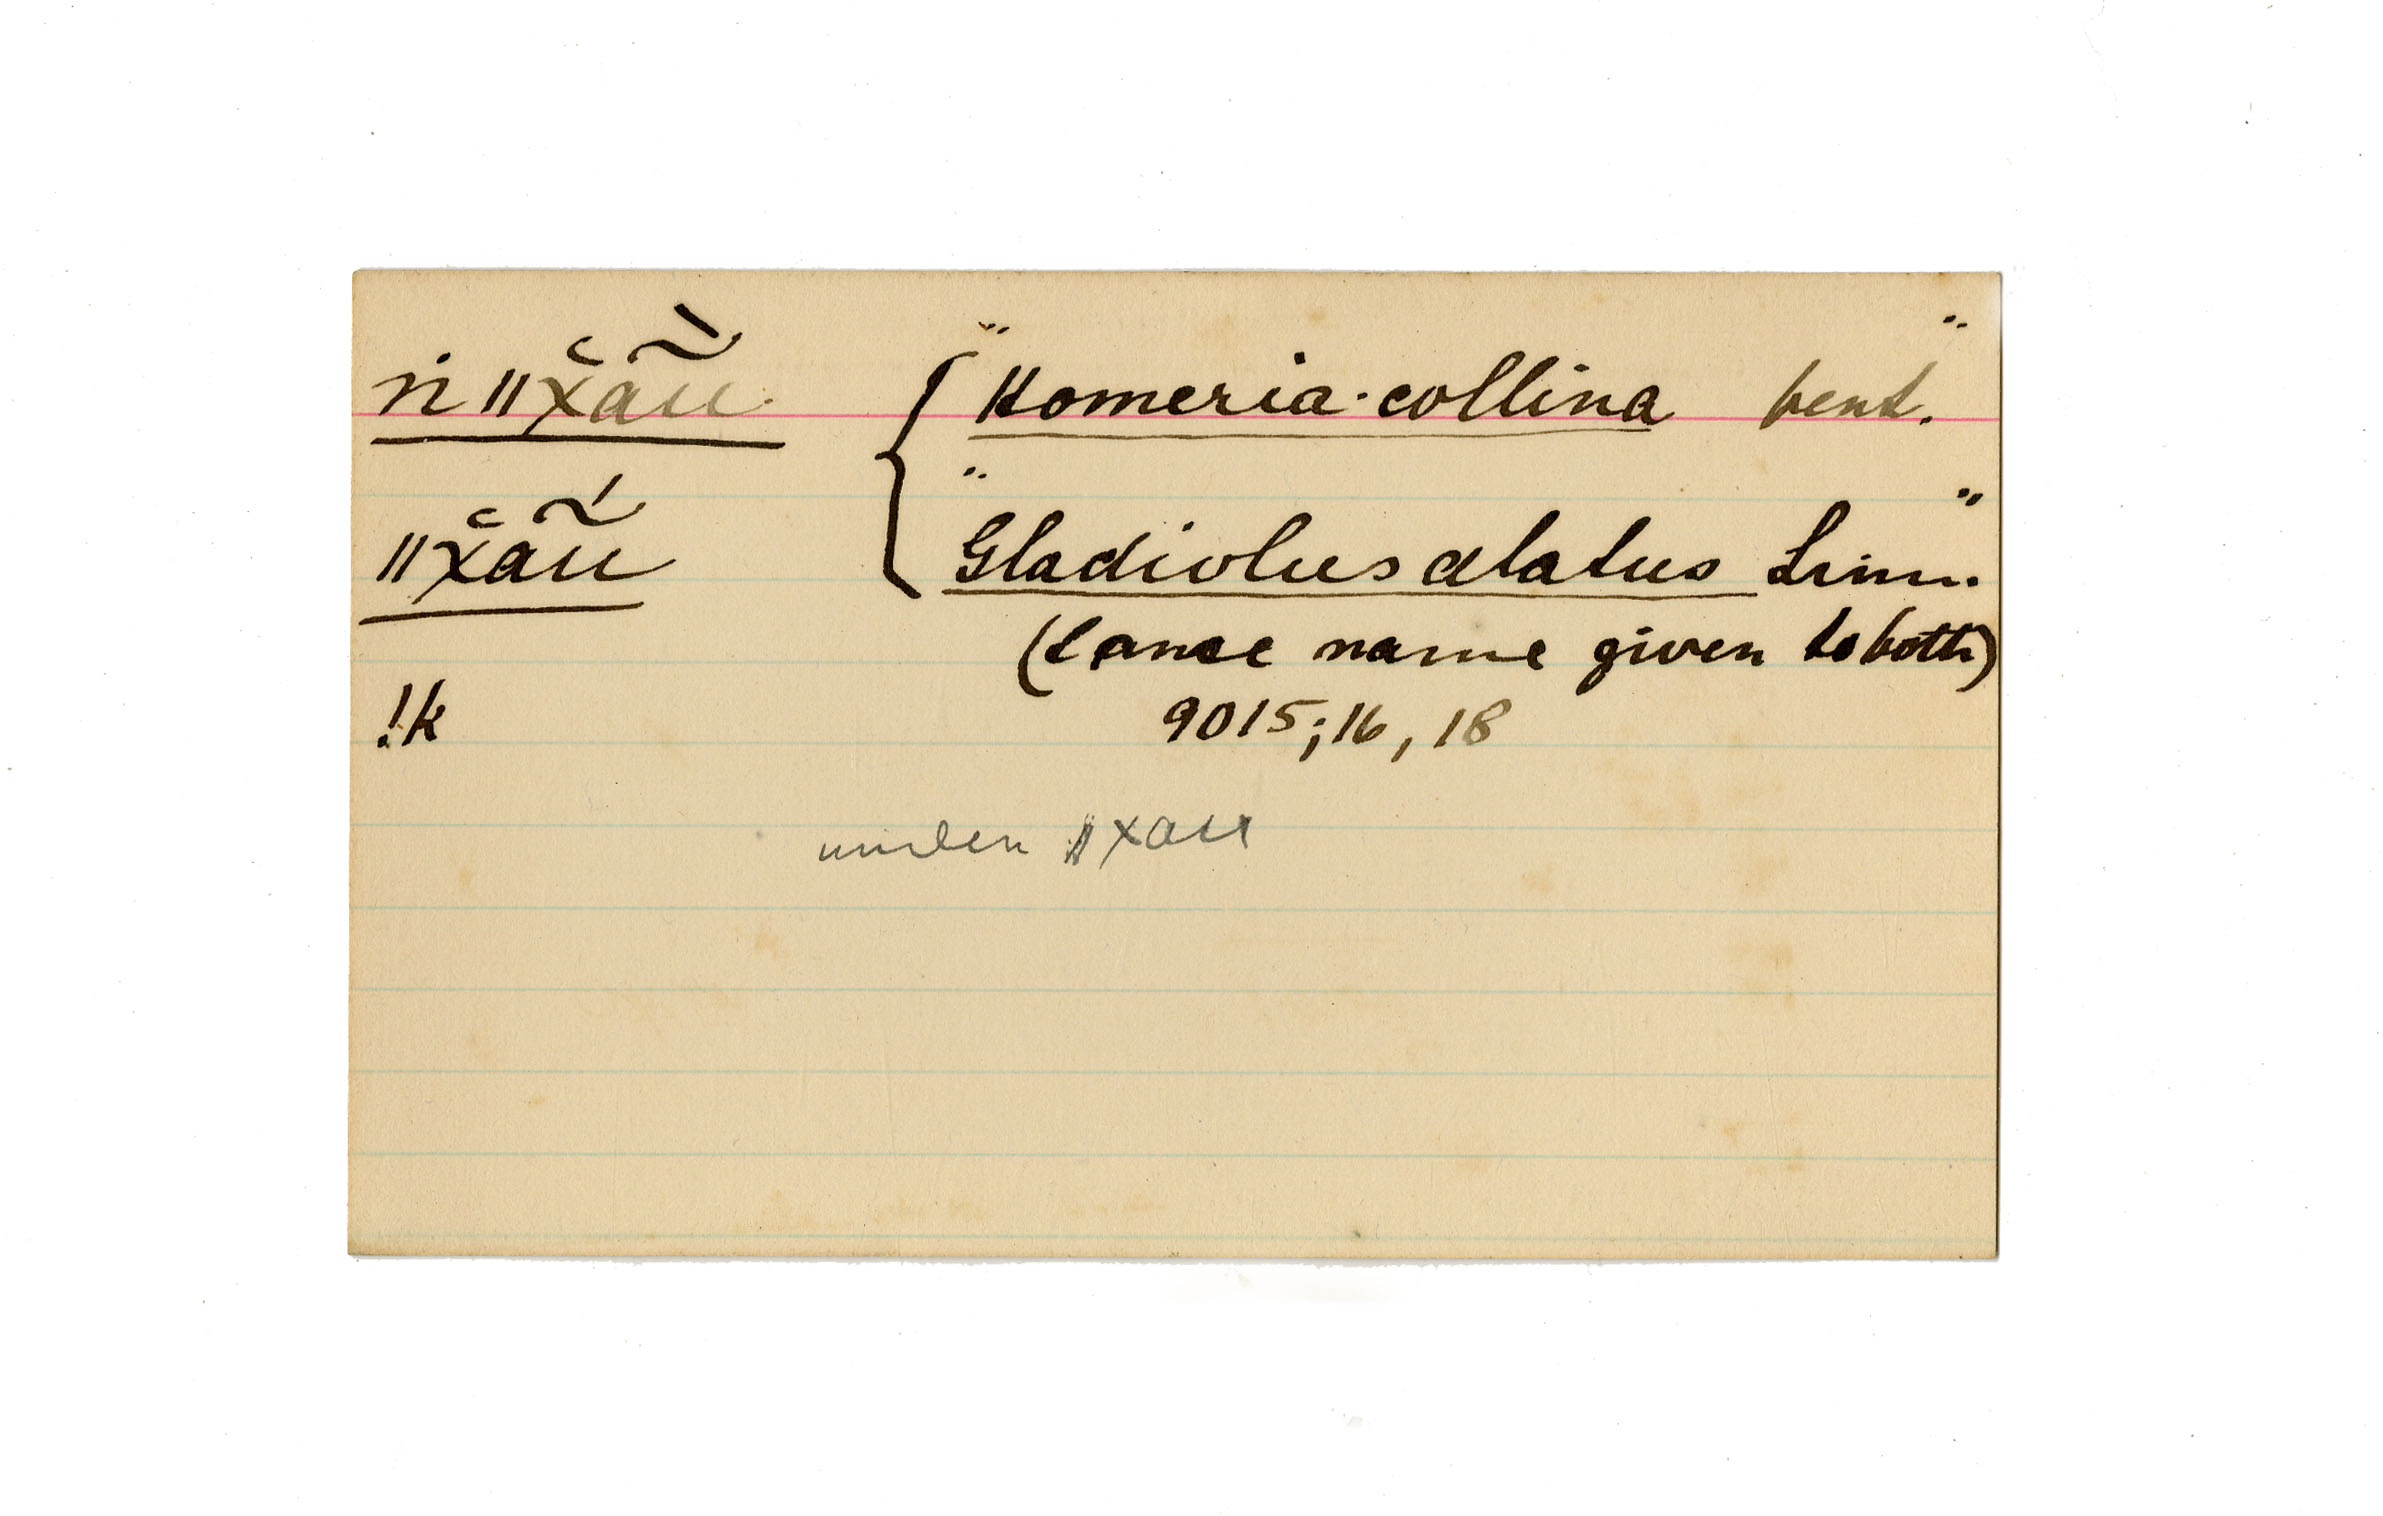 ṅ ǁx̆ã̀u. { "Homeria collina Vent."
ǁx̆ã́u "Gladiolus alatus Linn."
(same name given to both)
!k 9015; 16, 18
under ǁxau